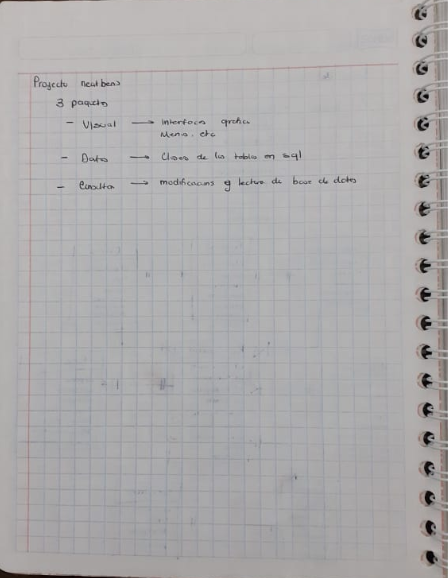 Proyecto netbeans
3 paquetes
- Visual → interfaces grafica
Menu, etc
- Datos → Clases de las tablas en sql
- Consultas → modificaciones y lectura de base de datos